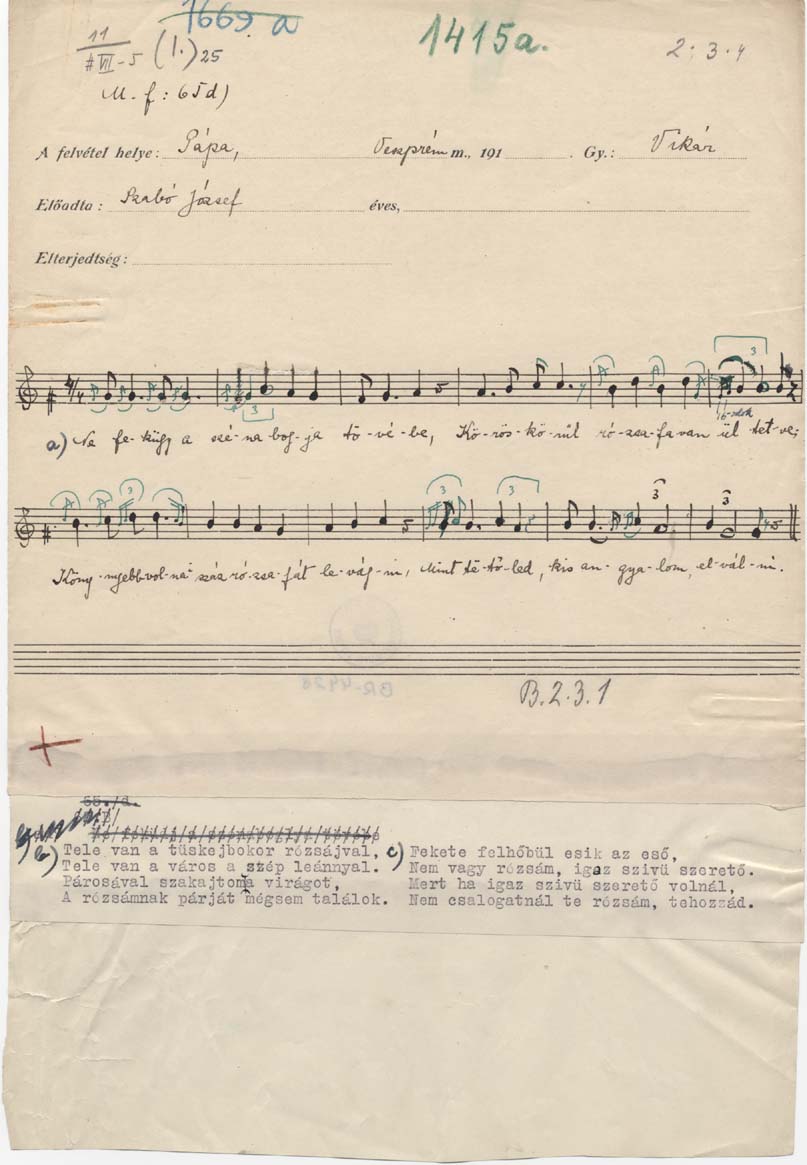 1669 a
11
VII-5 (1.) 25
1415a.
2. 3. 4
M. f: 65d)
A felvétel helye: Pápa, Veszprém m., 191 . Gy.: Vikár
Előadta: Szabó József éves,
Elterjedtség:
7/4
3
3
5
16-odok
a) Ne fe-kügy a szé-na-bog-ja tö-vé-be, Kö-rös-kö-rűl ró-zsa-fa van ül tet-ve;
3
3
3
3
3
Köny-nyebb vol-na száz ró-zsa-fát le-vág-ni, Mint te-tő-led, kis an-gya-lom, el-vál-ni.
BR-4928
B.2.3.1
55./d.
b) Tele van a tüskejbokor rózsájval,
Tele van a város a szép leánnyal.
Párosával szakajtom a virágot,
A rózsámnak párját mégsem találok.
c) Fekete felhőbül esik az eső,
Nem vagy rózsám, igaz szivü szerető.
Mert ha igaz szivü szerető volnál,
Nem csalogatnál te rózsám, tehozzád.